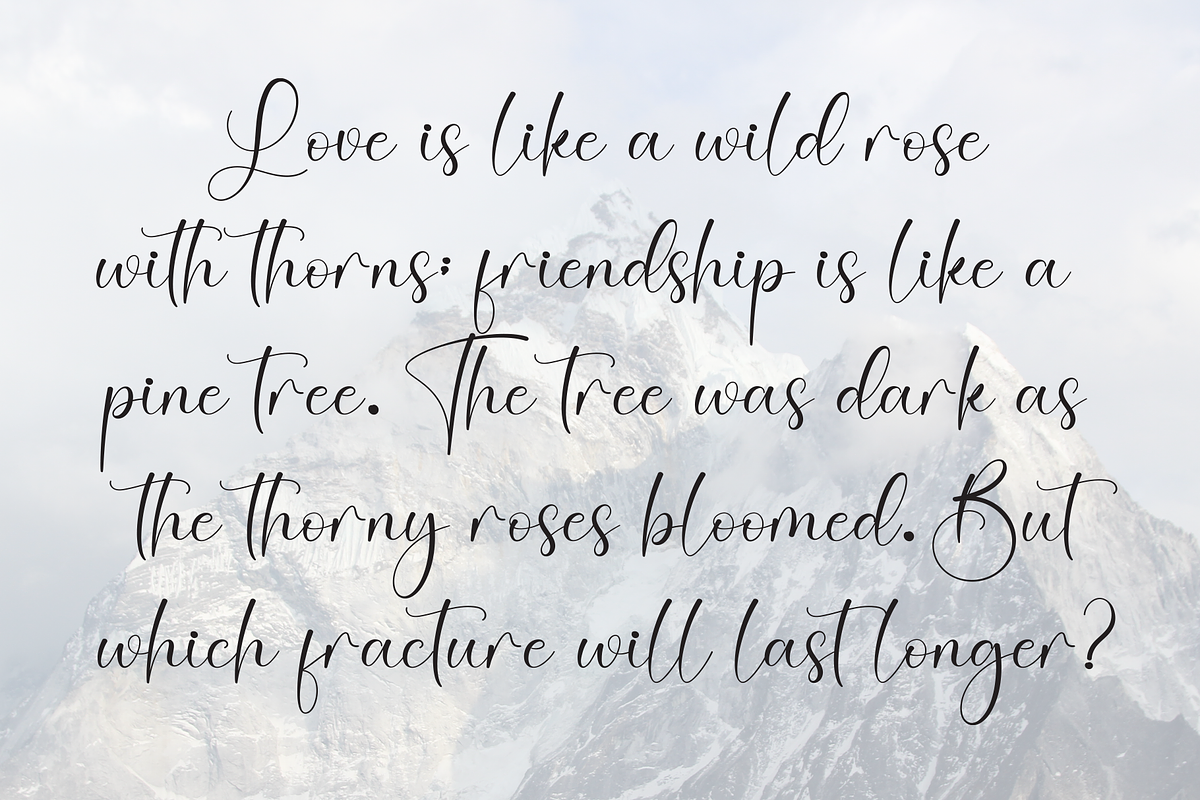 Love is like a wild rose
with thorns; friendship is like a
pine tree. The tree was dark as
the thorny roses bloomed. But
which fracture will last longer?